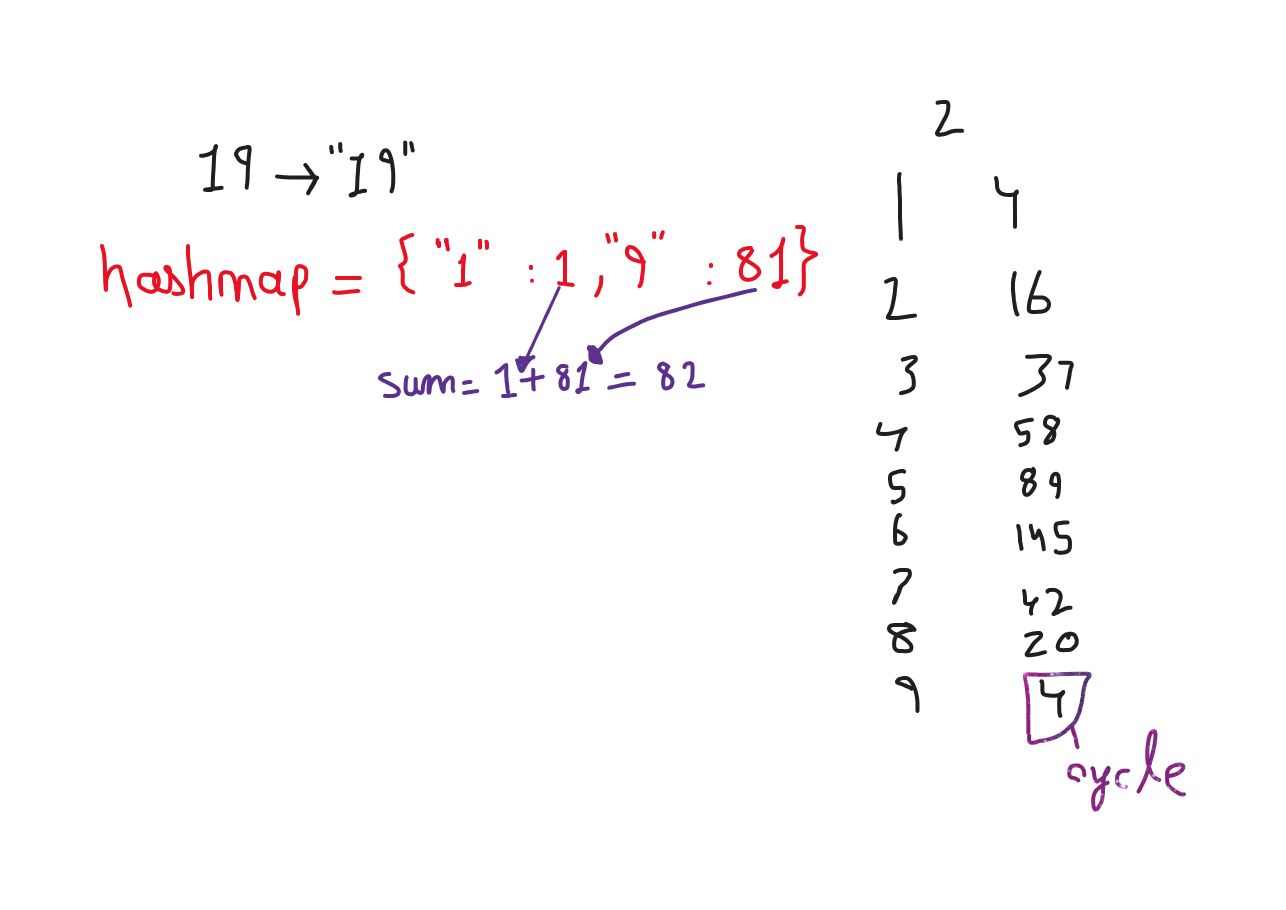 19 → "19"
hashmap = { "1" : 1, "9" : 81}
sum= 1+81 = 82
2
1 4
2 16
3 37
4 58
5 89
6 145
7 42
8 20
9 4
cycle